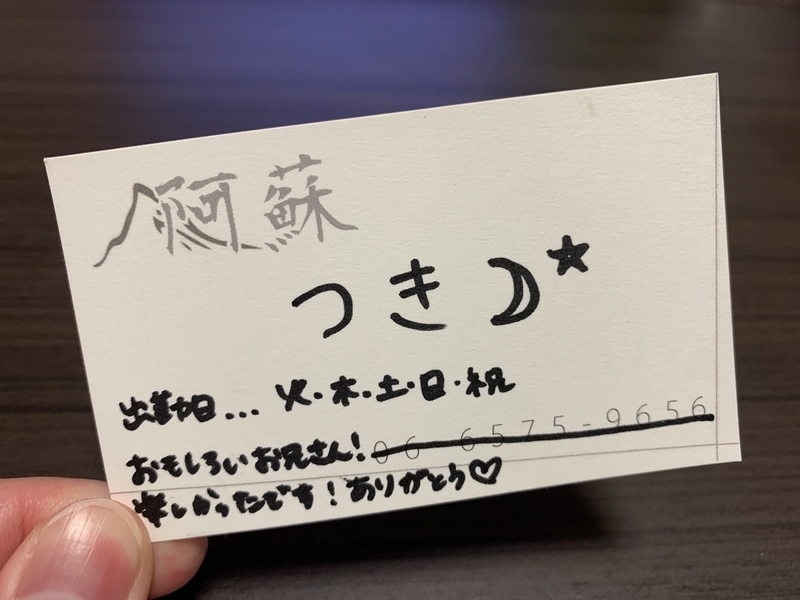 阿蘇
つき
出勤日... 火・木・土・日・祝
06 6575-9656
おもしろいお兄さん!
楽しかったです!ありがとう♡